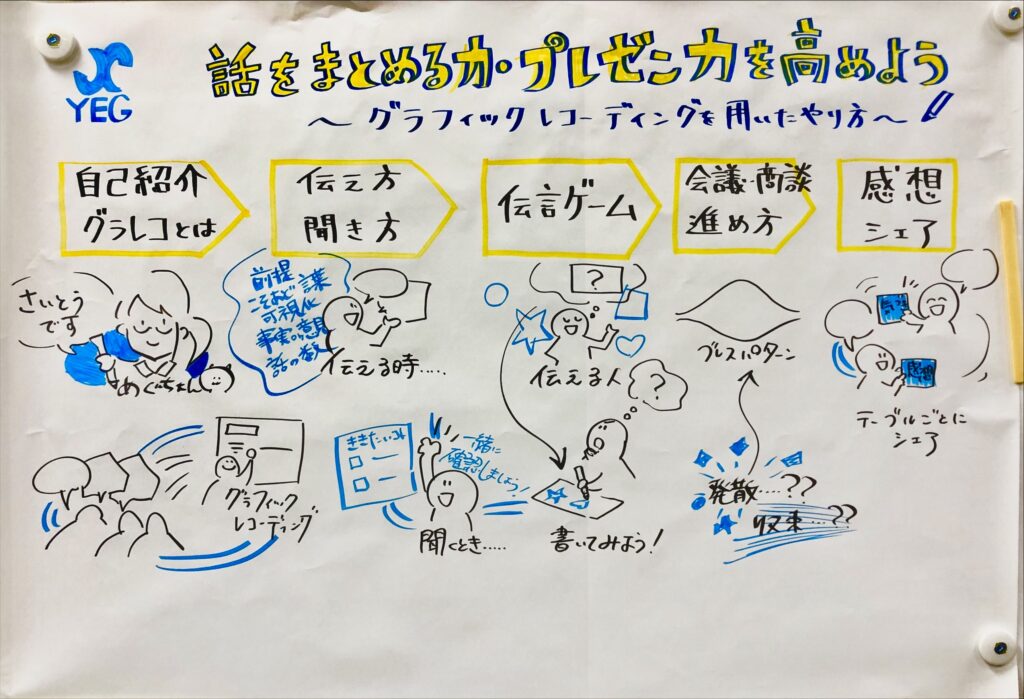 YEG
話をまとめる力・プレゼン力を高めよう
～グラフィックレコーディングを用いたやり方～
自己紹介
グラレコとは
伝え方
聞き方
伝言ゲーム
会議・商談
進め方
感想
シェア
さいとう
です
めぐちゃん
前提
こそあど言葉
可視化
事実⇔意見
話の数
伝える時.....
?
伝える人
?
ブレスパターン
感想
感想
テーブルごとに
シェア
グラフィック
レコーディング
ききたいコト
一緒に
確認しましょう!
聞くとき.....
書いてみよう!
発散....??
収束...??